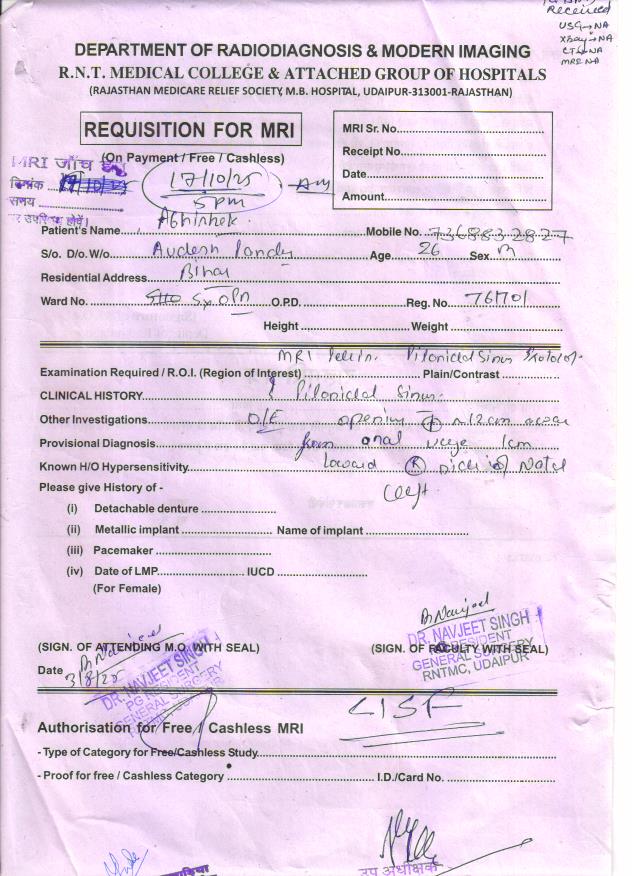 Received
USG→NA
Xray→NA
CT→NA
MRI NA
DEPARTMENT OF RADIODIAGNOSIS & MODERN IMAGING
R.N.T. MEDICAL COLLEGE & ATTACHED GROUP OF HOSPITALS
(RAJASTHAN MEDICARE RELIEF SOCIETY, M.B. HOSPITAL, UDAIPUR-313001-RAJASTHAN)
REQUISITION FOR MRI
(On Payment / Free / Cashless)
MRI Sr. No.
Receipt No.
Date
Amount
MRI जाँच हेतु
दिनांक
समय
17/10/25
5pm
Abhishek
Patient's Name
Mobile No. 7368832827
S/o. D/o. W/o. Avdesh Pandy Age 26 Sex M
Residential Address Bihar
Ward No. O.P.D. Reg. No. 76701
Height Weight
MRI Pelvis. Pilonidal Sinus Protocol
Examination Required / R.O.I. (Region of Interest) Plain/Contrast
CLINICAL HISTORY Pilonidal Sinus
Other Investigations O/E opening + 12cm away
Provisional Diagnosis from anal verge 1cm
Known H/O Hypersensitivity toward R side of Natal
Please give History of - Cleft.
(i) Detachable denture
(ii) Metallic implant Name of implant
(iii) Pacemaker
(iv) Date of LMP IUCD
(For Female)
Dr Navjeet
Dr Navjeet
(SIGN. OF ATTENDING M.O. WITH SEAL)
(SIGN. OF FACULTY WITH SEAL)
Date 3/8/25
DR. NAVJEET SINGH
PG RESIDENT
GENERAL SURGERY
DR. NAVJEET SINGH
RESIDENT
GENERAL SURGERY
RNTMC, UDAIPUR
CISF
Authorisation for Free / Cashless MRI
- Type of Category for Free/Cashless Study
- Proof for free / Cashless Category I.D./Card No.
उप अधीक्षक